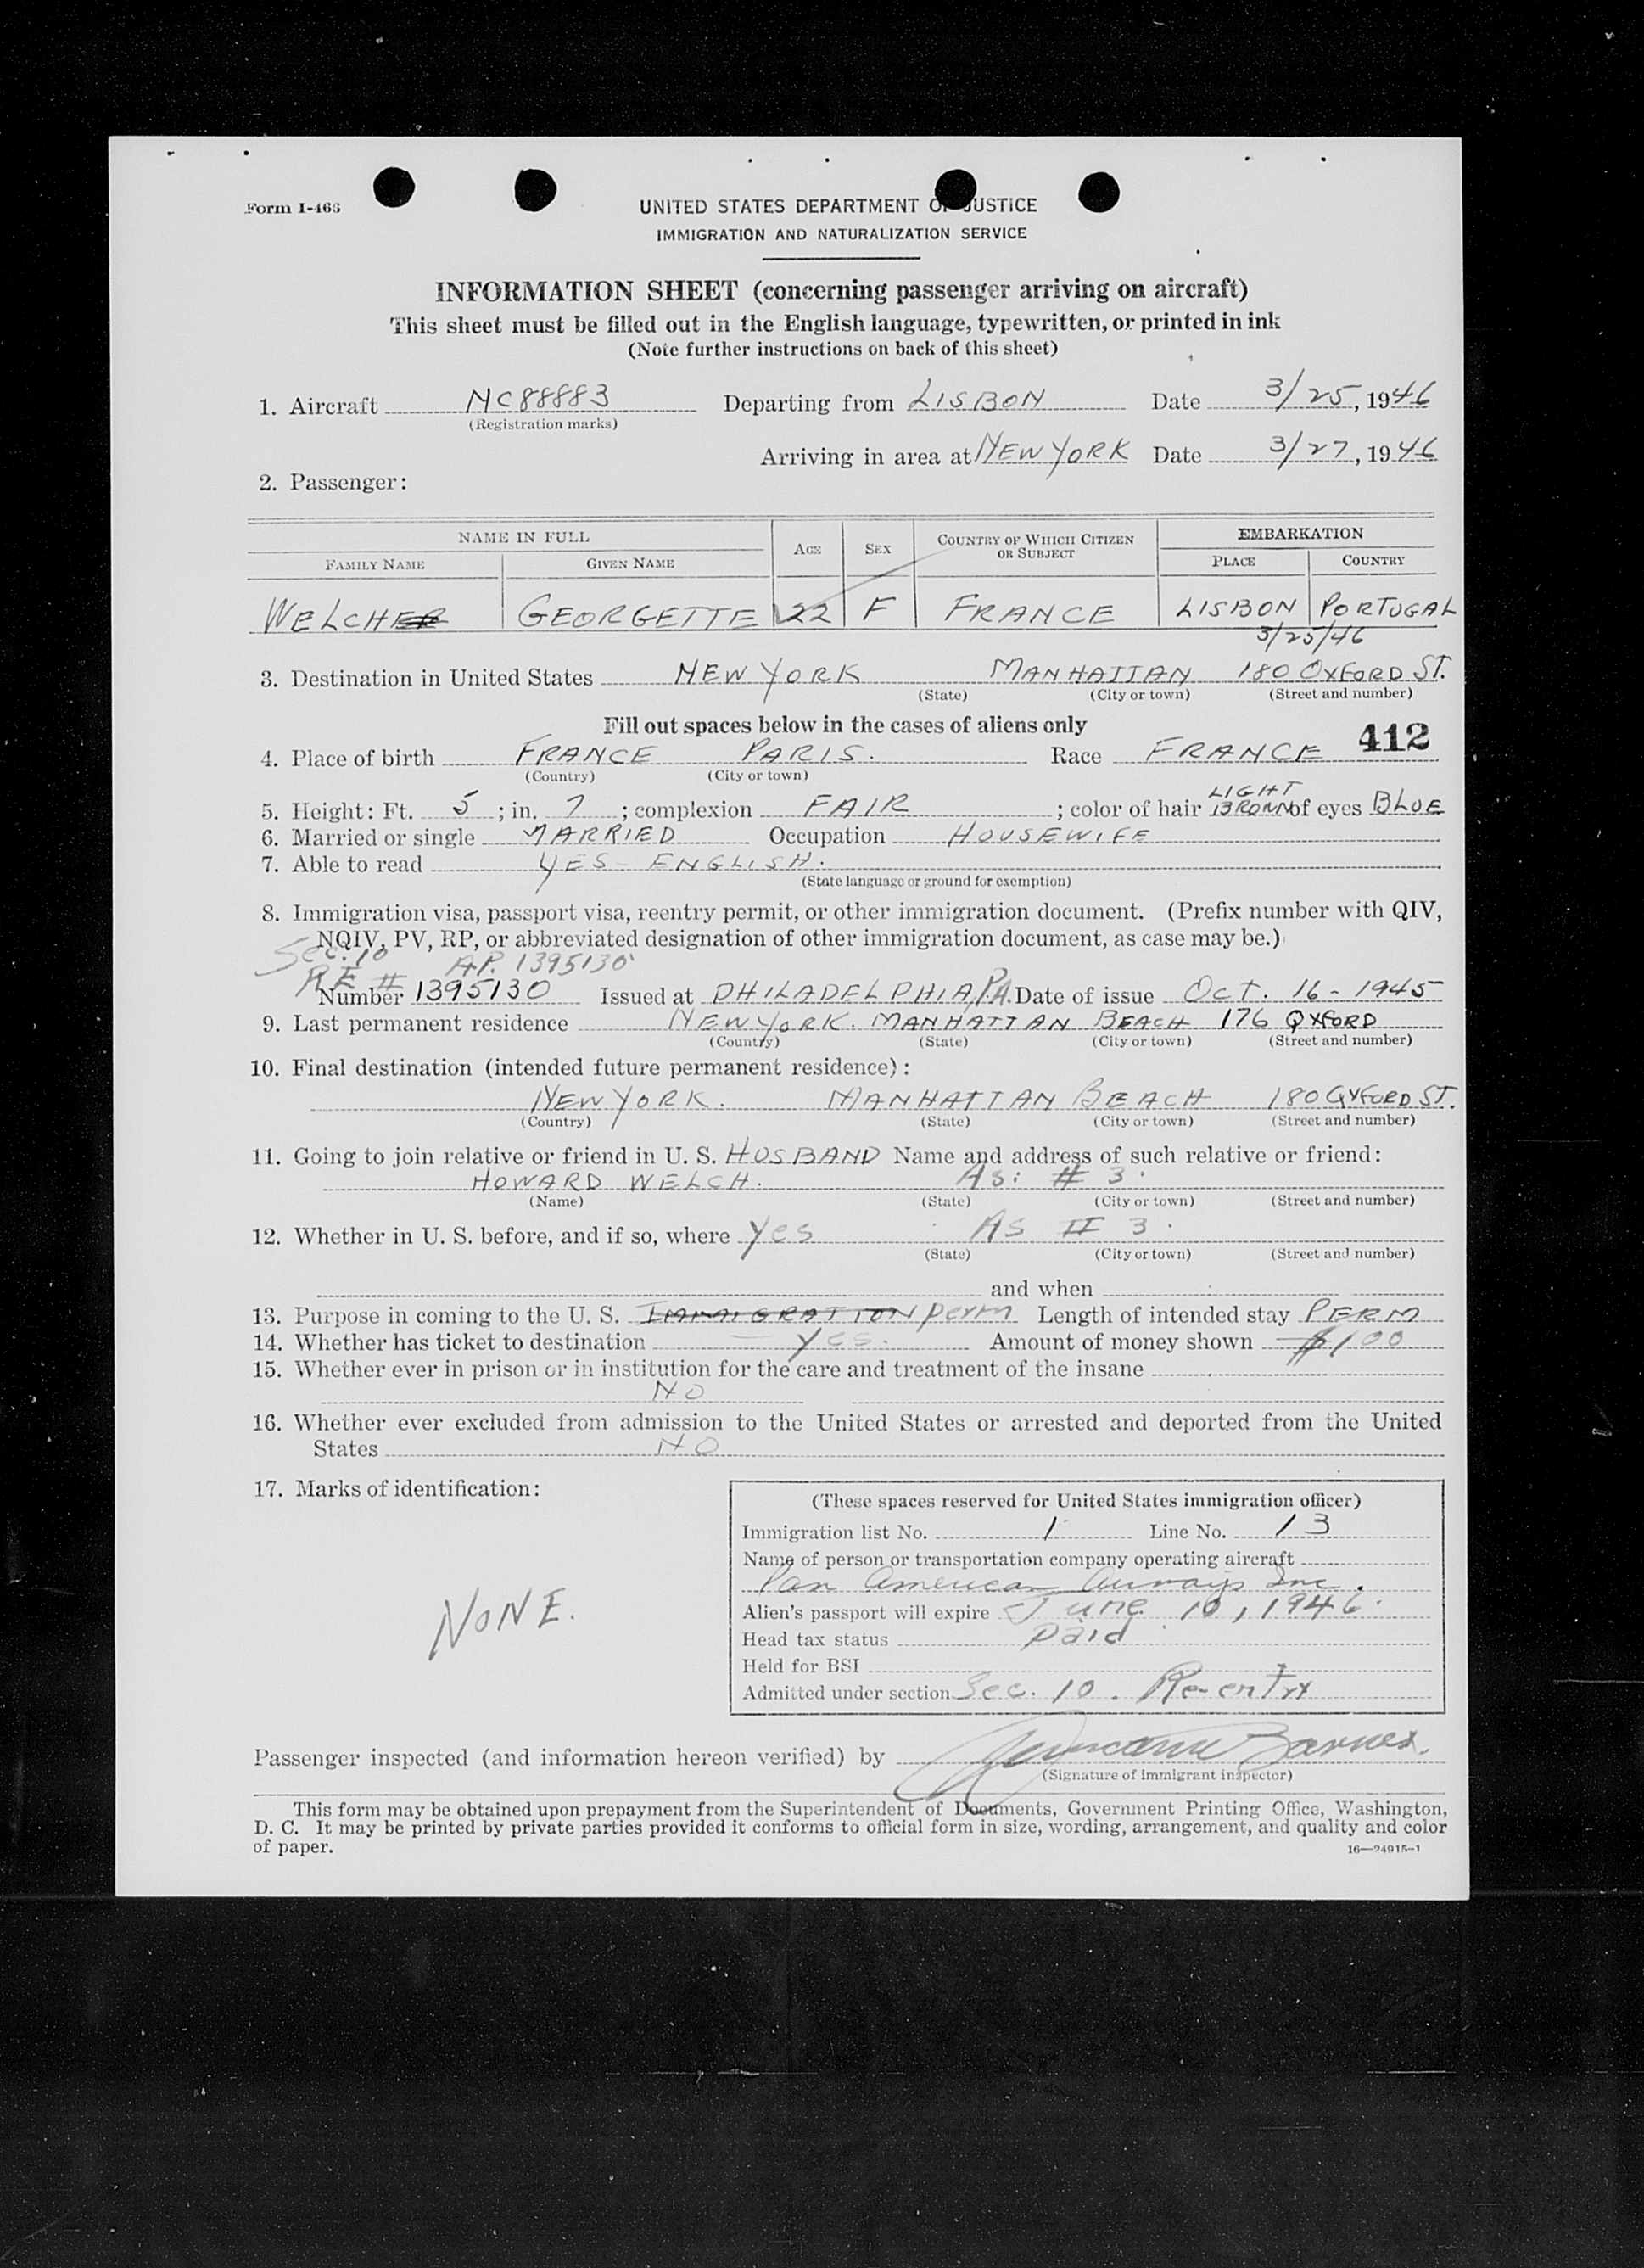 Form I-466
UNITED STATES DEPARTMENT OF JUSTICE
IMMIGRATION AND NATURALIZATION SERVICE
INFORMATION SHEET (concerning passenger arriving on aircraft)
This sheet must be filled out in the English language, typewritten, or printed in ink
(Note further instructions on back of this sheet)
1. Aircraft NC88883 Departing from LISBON Date 3/25, 1946
(Registration marks)
Arriving in area at NEW YORK Date 3/27, 1946
2. Passenger:
NAME IN FULL AGE SEX COUNTRY OF WHICH CITIZEN OR SUBJECT EMBARKATION
FAMILY NAME GIVEN NAME PLACE COUNTRY
WELCH GEORGETTE 22 F FRANCE LISBON PORTUGAL
3/25/46
3. Destination in United States NEW YORK MANHATTAN 180 OXFORD ST.
(State) (City or town) (Street and number)
Fill out spaces below in the cases of aliens only
412
4. Place of birth FRANCE PARIS. Race FRANCE
(Country) (City or town)
5. Height: Ft. 5; in. 7; complexion FAIR; color of hair LIGHT BROWN of eyes BLUE
6. Married or single MARRIED Occupation HOUSEWIFE
7. Able to read YES - ENGLISH.
(State language or ground for exemption)
8. Immigration visa, passport visa, reentry permit, or other immigration document. (Prefix number with QIV,
NQIV, PV, RP, or abbreviated designation of other immigration document, as case may be.)
Sec. 10 AP. 1395130
R.E #
Number 1395130 Issued at PHILADELPHIA, PA. Date of issue OCT. 16 - 1945
9. Last permanent residence NEW YORK. MANHATTAN BEACH 176 OXFORD
(Country) (State) (City or town) (Street and number)
10. Final destination (intended future permanent residence):
NEW YORK. MANHATTAN BEACH 180 OXFORD ST.
(Country) (State) (City or town) (Street and number)
11. Going to join relative or friend in U. S. HUSBAND Name and address of such relative or friend:
HOWARD WELCH. As: # 3.
(Name) (State) (City or town) (Street and number)
12. Whether in U. S. before, and if so, where Yes As # 3.
(State) (City or town) (Street and number)
and when
13. Purpose in coming to the U. S. IMMIGRATION perm Length of intended stay PERM
14. Whether has ticket to destination yes. Amount of money shown $100
15. Whether ever in prison or in institution for the care and treatment of the insane
NO
16. Whether ever excluded from admission to the United States or arrested and deported from the United
States NO
17. Marks of identification:
NONE.
(These spaces reserved for United States immigration officer)
Immigration list No. 1 Line No. 13
Name of person or transportation company operating aircraft
Pan American Airways Inc.
Alien's passport will expire June 10, 1946.
Head tax status paid
Held for BSI
Admitted under section Sec. 10. Re-entry
Passenger inspected (and information hereon verified) by Barnes.
(Signature of immigrant inspector)
This form may be obtained upon prepayment from the Superintendent of Documents, Government Printing Office, Washington,
D. C. It may be printed by private parties provided it conforms to official form in size, wording, arrangement, and quality and color
of paper.
16—24915-1